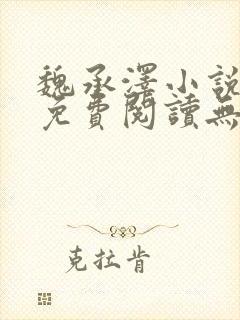 魏承澤小說
免費閱讀無
克拉肯